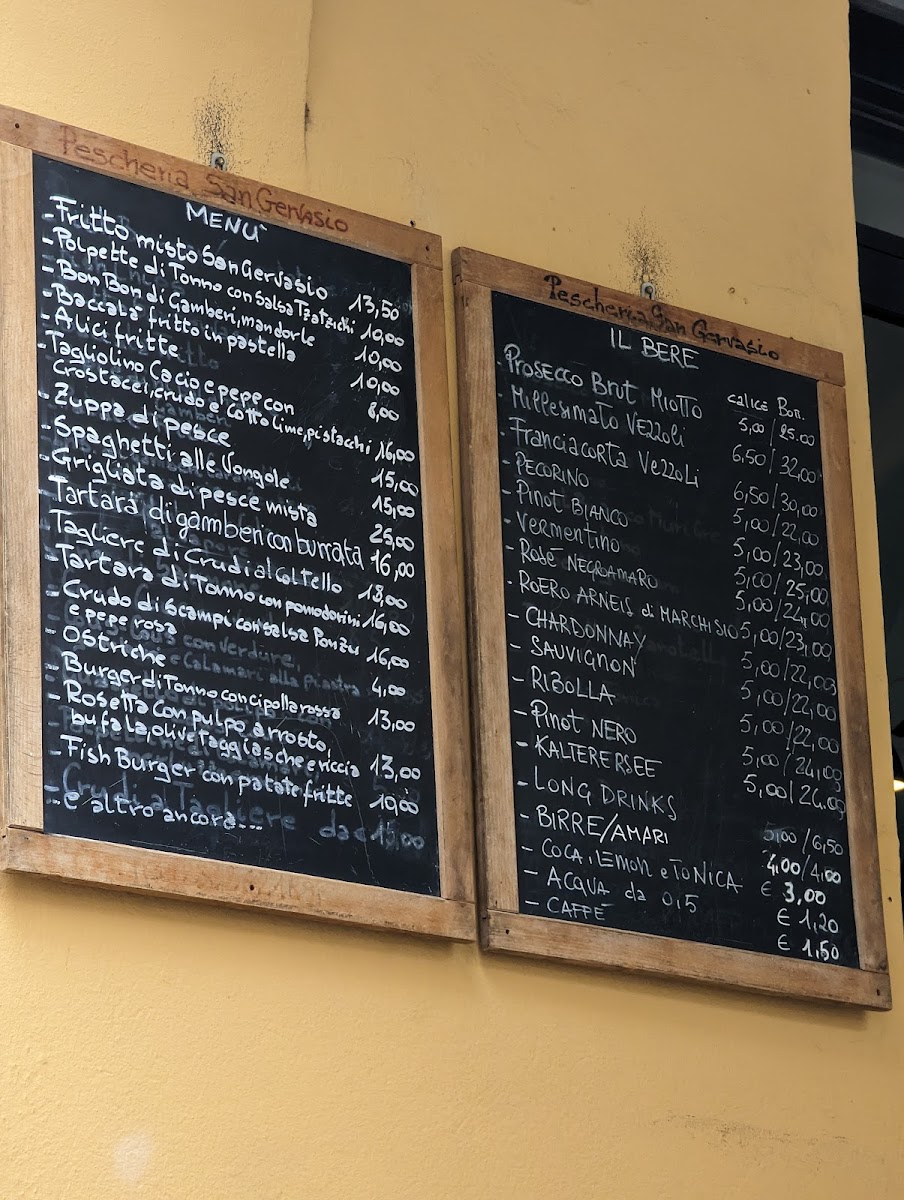 Pescheria San Gervasio
MENU'
- Fritto misto San Gervasio 13,50
- Polpette di Tonno con salsa Tzatzichi 10,00
- Bon Bon di Gamberi, mandorle 10,00
- Baccalà fritto in pastella 10,00
- Alici fritte 8,00
- Tagliolino Cacio e pepe con
crostacei, crudo e cotto lime, pistacchi 16,00
- Zuppa di pesce 15,00
- Spaghetti alle Vongole 15,00
- Grigliata di pesce mista 25,00
- Tartara di gamberi con burrata 16,00
- Tagliere di Crudi al Coltello 18,00
- Tartara di Tonno con pomodorini 16,00
- Crudo di scampi con salsa Ponzu 16,00
e pepe rosa
- Ostriche 4,00
- Burger di Tonno con cipolla rossa 13,00
- Rosetta con pulpo arrosto,
bufala, olive Taggiasche e riccia 13,00
- Fish Burger con patate fritte 10,00
... e altro ancora...
Pescheria San Gervasio
IL BERE
CALICE BOTT.
- PROSECCO Brut MIOTTO 5,00 / 25.00
- MILLESIMATO VEZZOLI 6,50 / 32,00
- FRANCIACORTA VEZZOLI 6,50 / 30,00
- PECORINO 5,00 / 22,00
- PINOT BIANCO 5,00 / 23,00
- VERMENTINO 5,00 / 25,00
- ROSÈ NEGROAMARO 5,00 / 24,00
- ROERO ARNEIS di MARCHISIO 5,00 / 23,00
- CHARDONNAY 5,00 / 22,00
- SAUVIGNON 5,00 / 22,00
- RIBOLLA 5,00 / 22,00
- PINOT NERO 5,00 / 24,00
- KALTERERSEE 5,00 / 24,00
- LONG DRINKS 5,00 / 6,50
- BIRRE/AMARI 4,00 / 4,00
- COCA, LEMON e TONICA € 3,00
- ACQUA da 0,5 € 1,20
- CAFFE' € 1,50